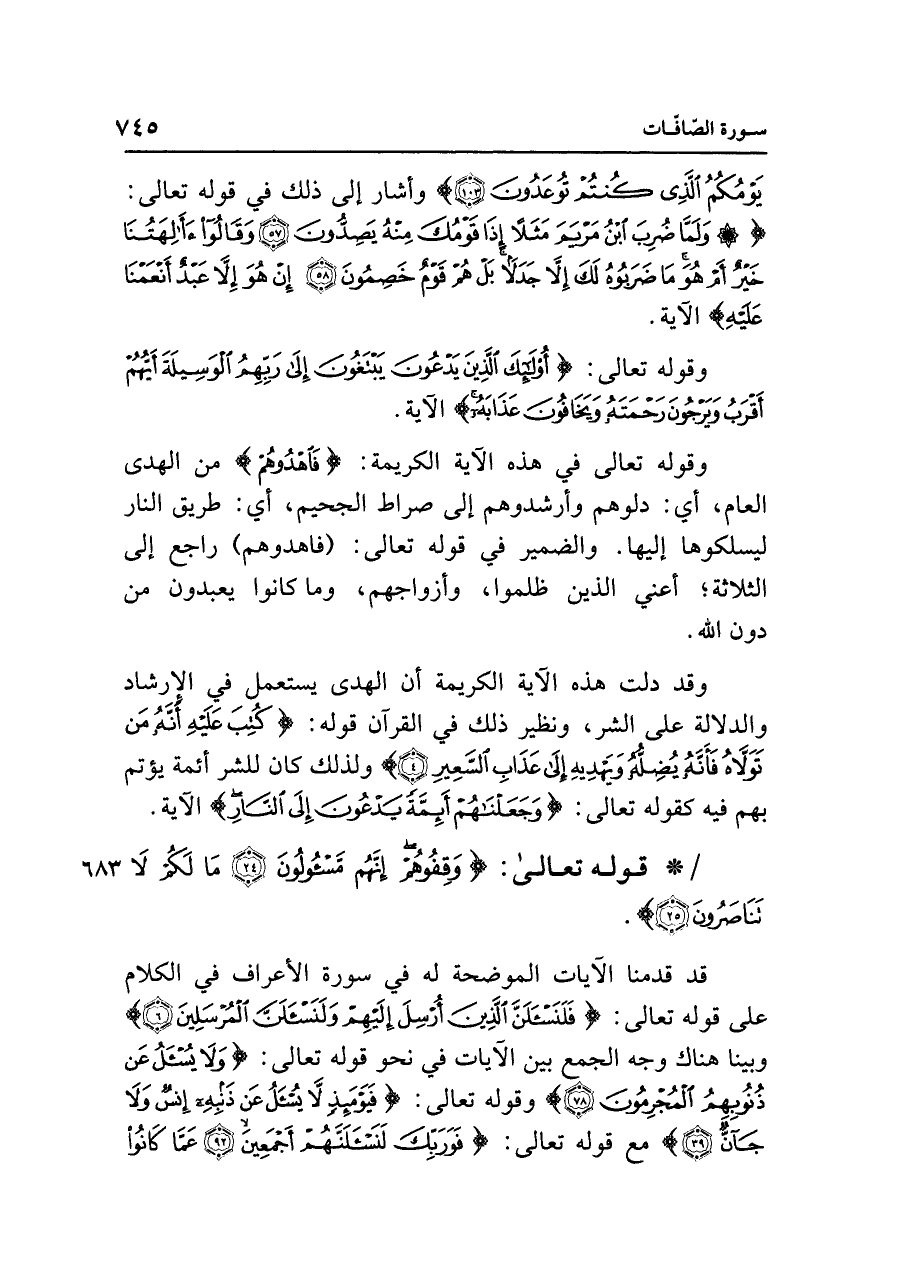 سورة الصّافّات ٧٤٥
يَوْمُكُمُ ٱلَّذِى كُنتُمْ تُوعَدُونَ ﴿١٠٣﴾﴾ وأشار إلى ذلك في قوله تعالى:
﴿ ۞ وَلَمَّا ضُرِبَ ٱبْنُ مَرْيَمَ مَثَلًا إِذَا قَوْمُكَ مِنْهُ يَصِدُّونَ ﴿٥٧﴾ وَقَالُوٓا۟ ءَأَٰلِهَتُنَا
خَيْرٌ أَمْ هُوَ ۚ مَا ضَرَبُوهُ لَكَ إِلَّا جَدَلًۢا ۚ بَلْ هُمْ قَوْمٌ خَصِمُونَ ﴿٥٨﴾ إِنْ هُوَ إِلَّا عَبْدٌ أَنْعَمْنَا
عَلَيْهِ﴾ الآية.
وقوله تعالى: ﴿ أُو۟لَٰٓئِكَ ٱلَّذِينَ يَدْعُونَ يَبْتَغُونَ إِلَىٰ رَبِّهِمُ ٱلْوَسِيلَةَ أَيُّهُمْ
أَقْرَبُ وَيَرْجُونَ رَحْمَتَهُۥ وَيَخَافُونَ عَذَابَهُۥٓ ۚ﴾ الآية.
وقوله تعالى في هذه الآية الكريمة: ﴿ فَٱهْدُوهُمْ ﴾ من الهدى
العام، أي: دلوهم وأرشدوهم إلى صراط الجحيم، أي: طريق النار
ليسلكوها إليها. والضمير في قوله تعالى: (فاهدوهم) راجع إلى
الثلاثة؛ أعني الذين ظلموا، وأزواجهم، وما كانوا يعبدون من
دون الله.
وقد دلت هذه الآية الكريمة أن الهدى يستعمل في الإرشاد
والدلالة على الشر، ونظير ذلك في القرآن قوله: ﴿ كُتِبَ عَلَيْهِ أَنَّهُۥ مَن
تَوَلَّاهُ فَأَنَّهُۥ يُضِلُّهُۥ وَيَهْدِيهِ إِلَىٰ عَذَابِ ٱلسَّعِيرِ ﴿٤﴾﴾ ولذلك كان للشر أئمة يؤتم
بهم فيه كقوله تعالى: ﴿ وَجَعَلْنَٰهُمْ أَئِمَّةً يَدْعُونَ إِلَى ٱلنَّارِ ۖ﴾ الآية.
/ * قوله تعالىٰ: ﴿ وَقِفُوهُمْ ۖ إِنَّهُم مَّسْـُٔولُونَ ﴿٢٤﴾ مَا لَكُمْ لَا ٦٨٣
تَنَاصَرُونَ ﴿٢٥﴾﴾.
قد قدمنا الآيات الموضحة له في سورة الأعراف في الكلام
على قوله تعالى: ﴿ فَلَنَسْـَٔلَنَّ ٱلَّذِينَ أُرْسِلَ إِلَيْهِمْ وَلَنَسْـَٔلَنَّ ٱلْمُرْسَلِينَ ﴿٦﴾﴾
وبينا هناك وجه الجمع بين الآيات في نحو قوله تعالى: ﴿ وَلَا يُسْـَٔلُ عَن
ذُنُوبِهِمُ ٱلْمُجْرِمُونَ ﴿٧٨﴾﴾ وقوله تعالى: ﴿ فَيَوْمَئِذٍ لَّا يُسْـَٔلُ عَن ذَنۢبِهِۦٓ إِنسٌ وَلَا
جَآنٌّ ﴿٣٩﴾﴾ مع قوله تعالى: ﴿ فَوَرَبِّكَ لَنَسْـَٔلَنَّهُمْ أَجْمَعِينَ ﴿٩٢﴾ عَمَّا كَانُوا۟